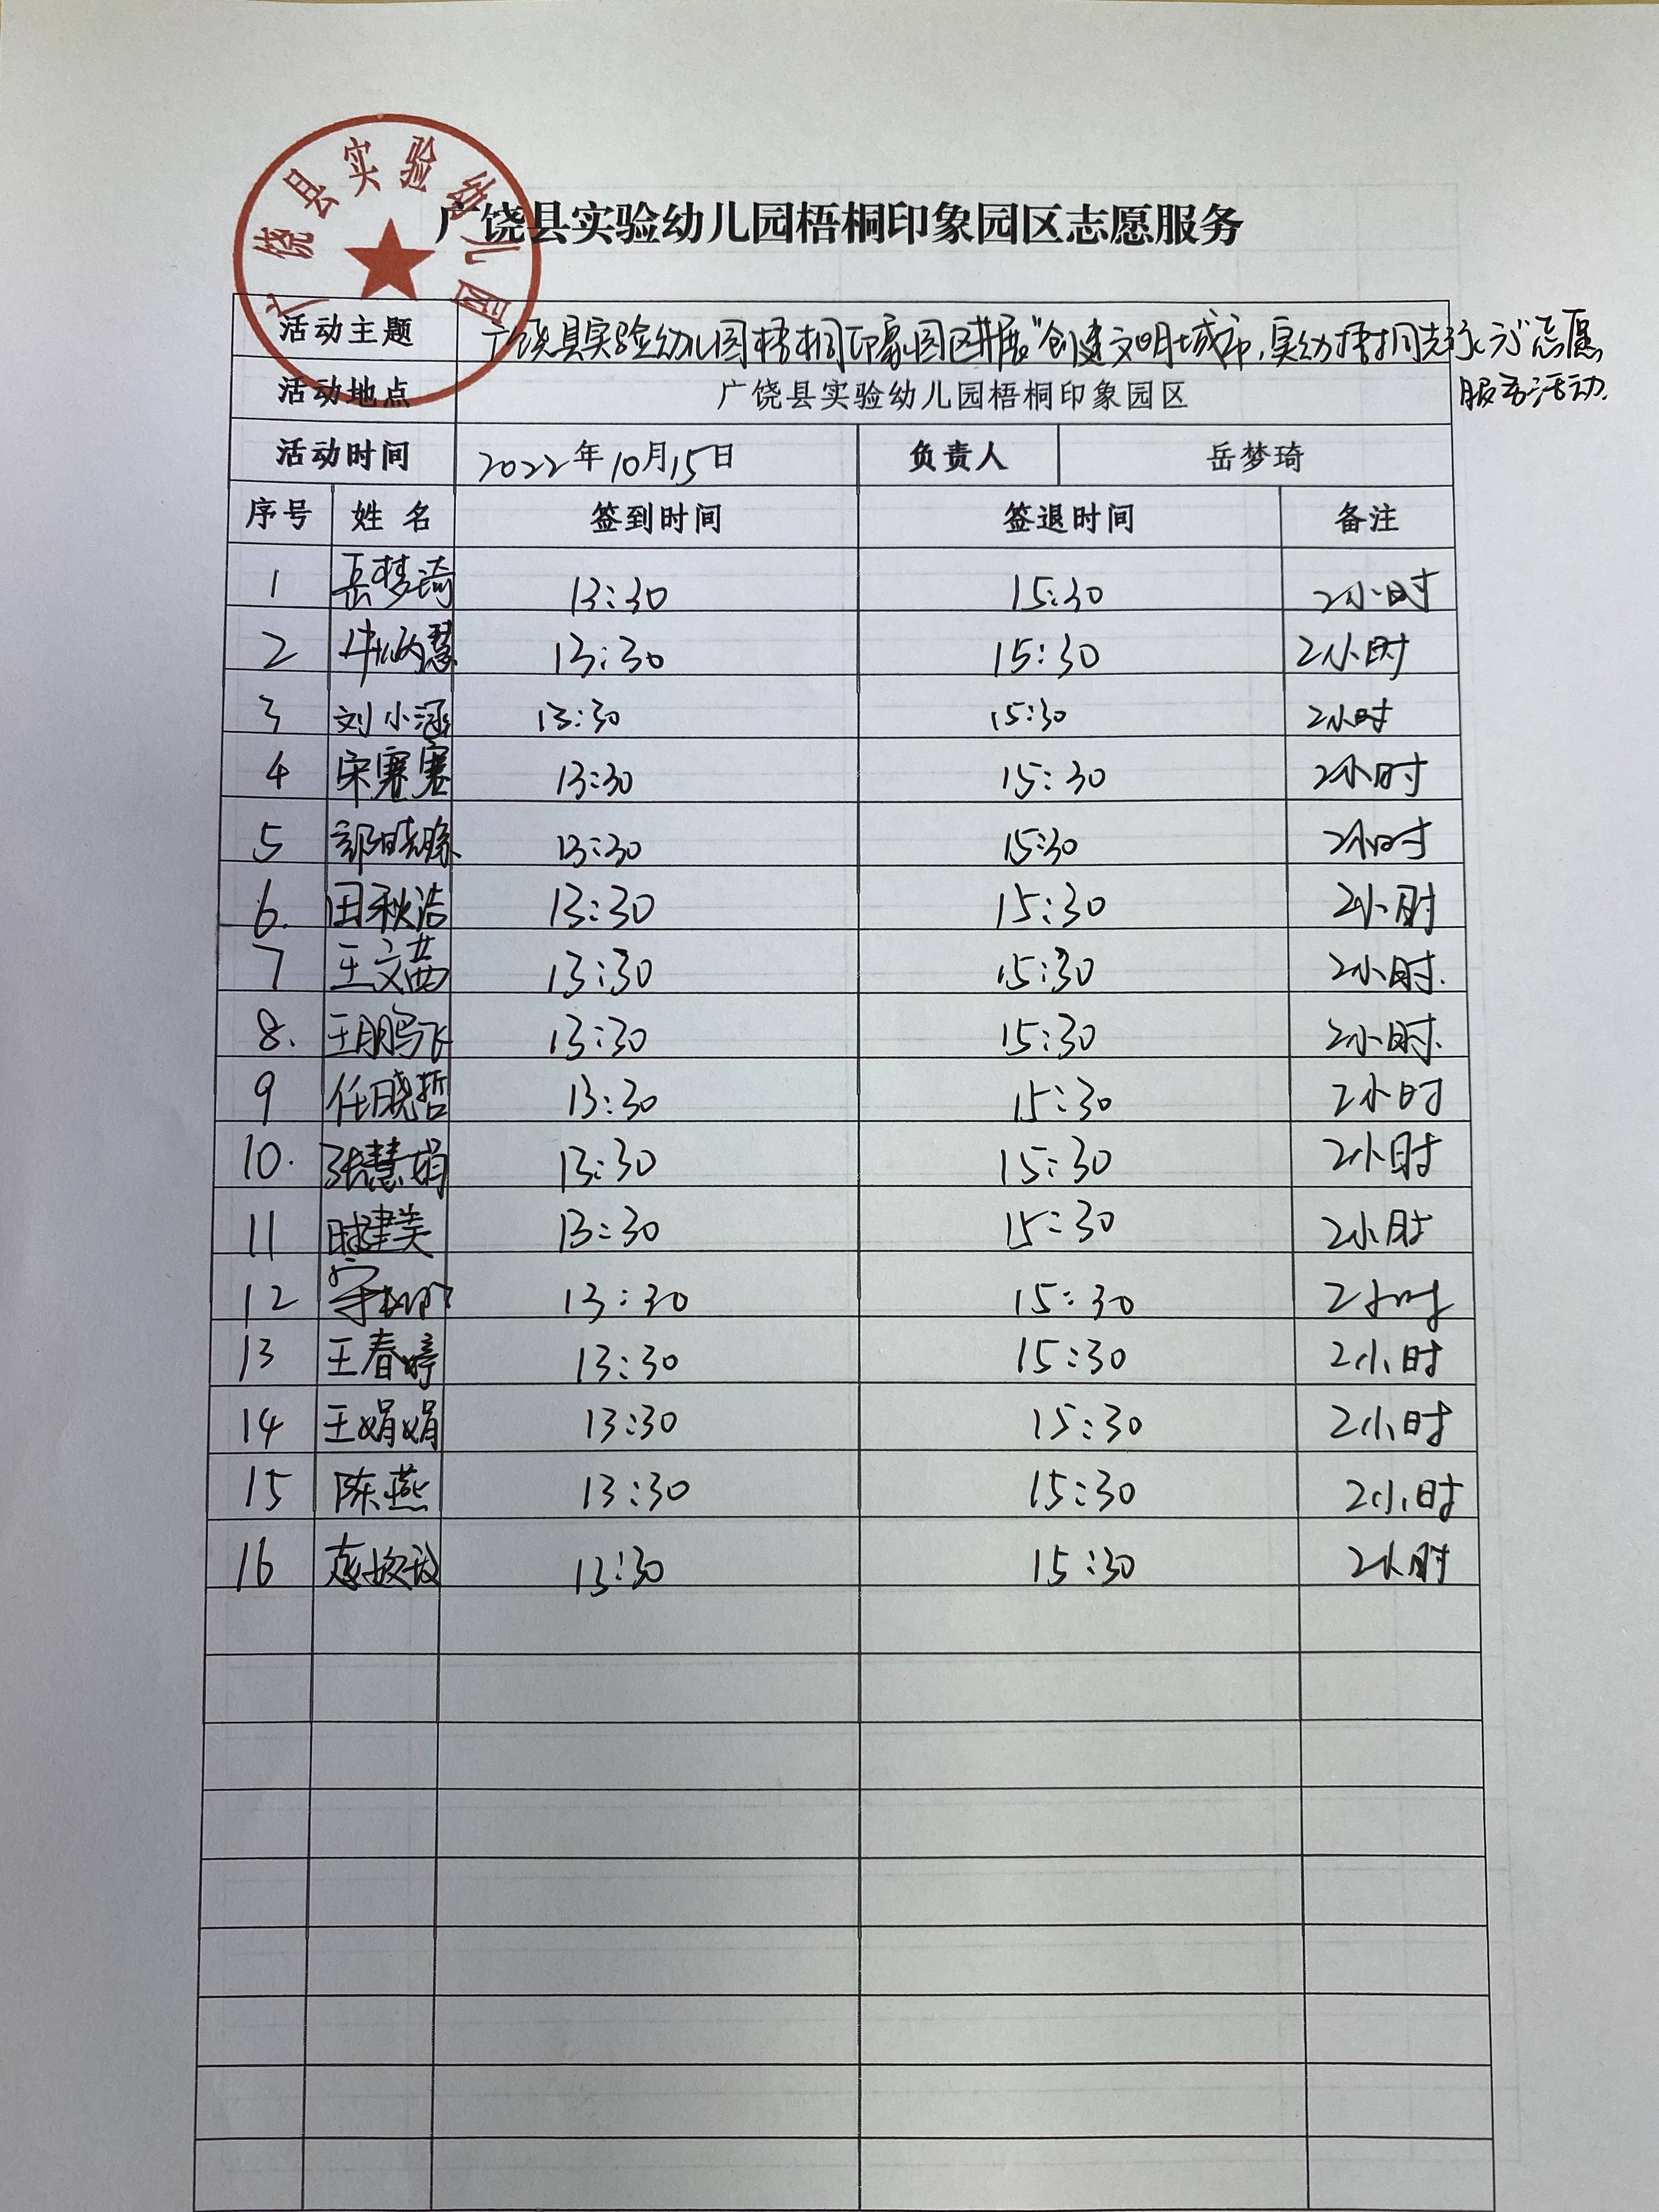 广饶县实验幼儿园
广饶县实验幼儿园梧桐印象园区志愿服务
活动主题 广饶县实验幼儿园梧桐印象园区开展“创建文明城市,实幼梧桐先行”志愿
服务活动.
活动地点 广饶县实验幼儿园梧桐印象园区
活动时间 2022年10月15日 负责人 岳梦琦
序号 姓名 签到时间 签退时间 备注
1 岳梦琦 13:30 15:30 2小时
2 13:30 15:30 2小时
3 刘小涵 13:30 15:30 2小时
4 宋赛赛 13:30 15:30 2小时
5 13:30 15:30 2小时
6. 田秋洁 13:30 15:30 2小时
7 王文茜 13:30 15:30 2小时.
8. 王鹏飞 13:30 15:30 2小时.
9 任晓哲 13:30 15:30 2小时
10. 张慧娟 13:30 15:30 2小时
11 时建美 13:30 15:30 2小时
12 13:30 15:30 2小时
13 王春婷 13:30 15:30 2小时
14 王娟娟 13:30 15:30 2小时
15 陈燕 13:30 15:30 2小时
16 13:30 15:30 2小时